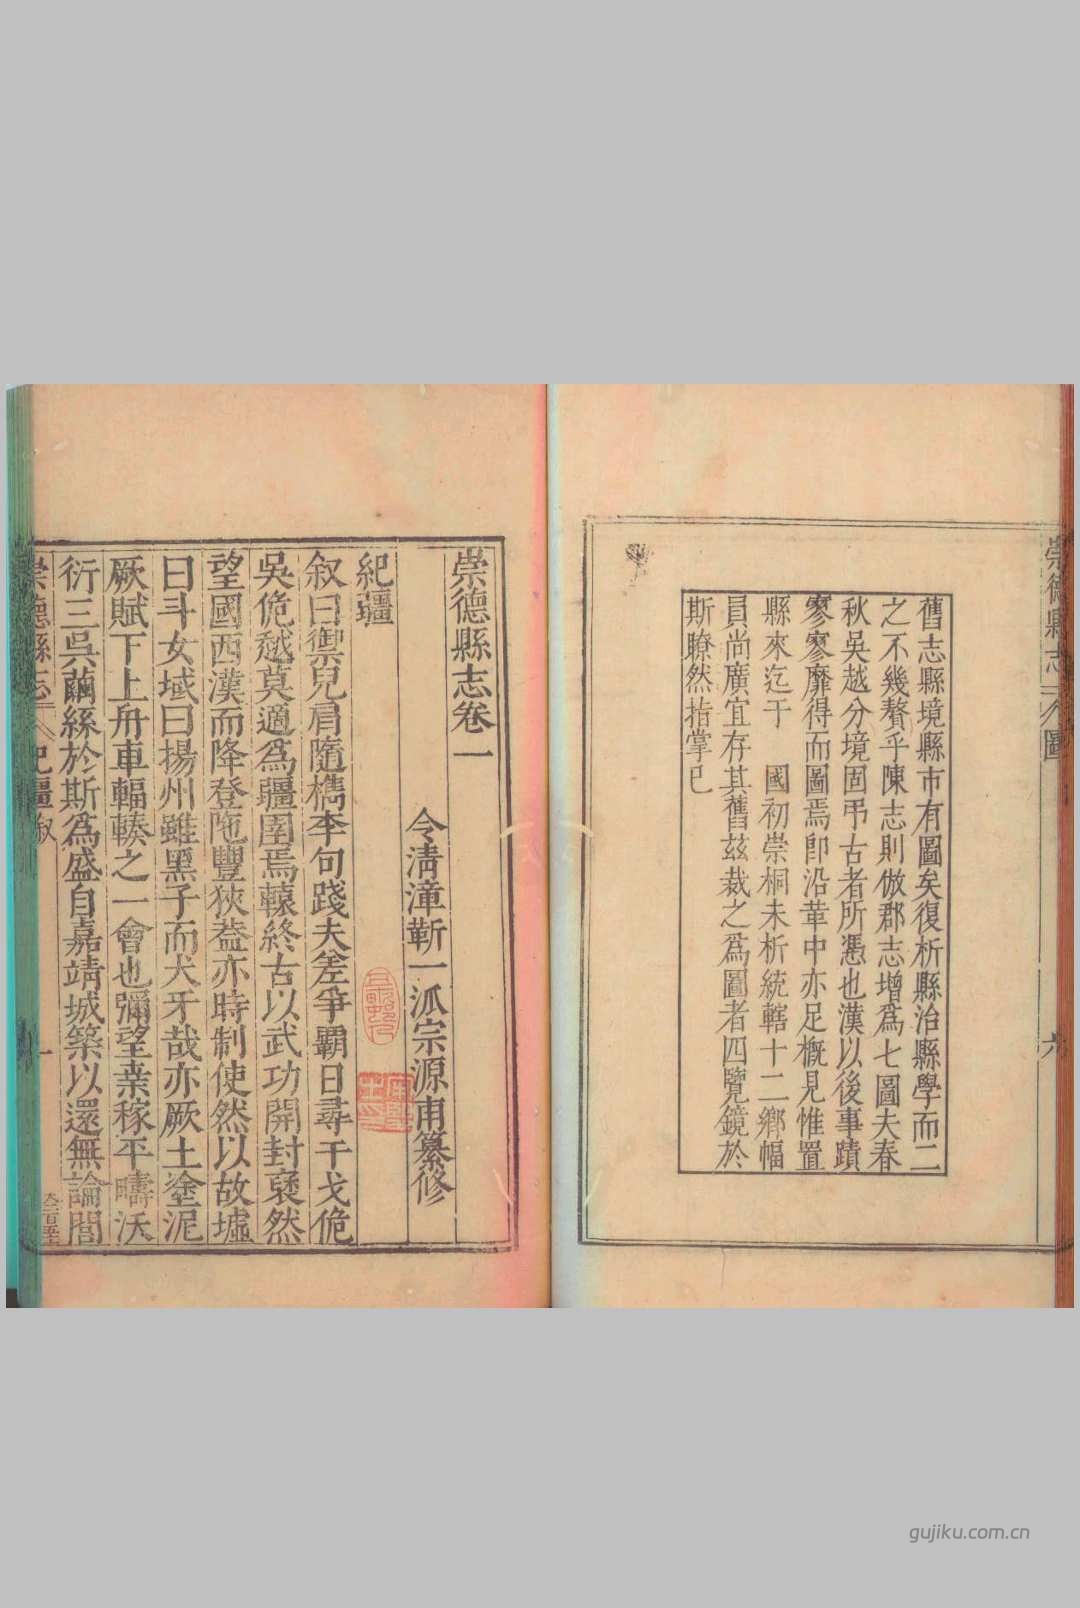 崇德縣志
圖
六
舊志縣境縣市有圖矣復析縣治縣學而二
之不幾贅乎陳志則倣郡志增爲七圖夫春
秋吳越分境固弔古者所憑也漢以後事蹟
寥寥靡得而圖焉卽沿革中亦足概見惟置
縣來迄于 國初崇桐未析統轄十二鄉幅
員尚廣宜存其舊茲裁之爲圖者四覽鏡於
斯瞭然指掌已
崇德縣志卷一
令清漳靳一派宗源甫纂修
紀疆
叙曰禦兒肩隨檇李句踐夫差爭霸日尋干戈佹
吳佹越莫適爲疆圉焉轅終古以武功開封褎然
望國西漢而降登陁豐狹葢亦時制使然以故墟
曰斗女域曰揚州雖黑子而犬牙哉亦厥土塗泥
厥賦下上舟車輻輳之一會也彌望桒稼平疇沃
衍三吳繭絲於斯爲盛自嘉靖城築以還無論閭
崇德縣志
紀疆叙
一
gujiku.com.cn